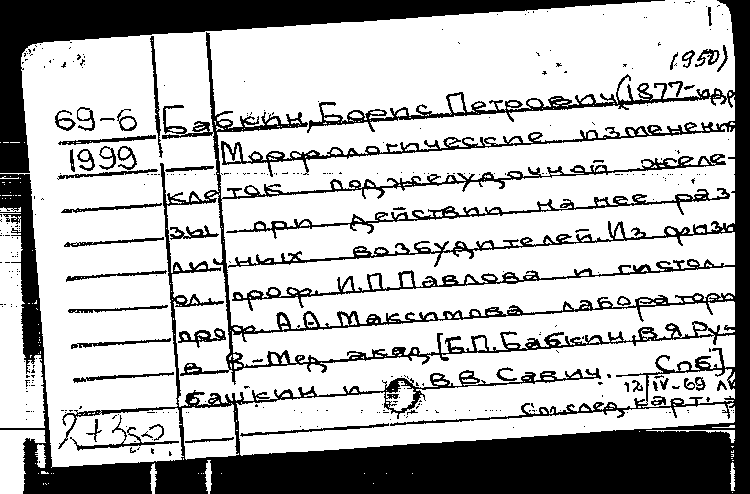 1950)
69-6 Бабкин, Борис Петрович (1877- и др.
1999 Морфологические изменения
клеток поджелудочной желе-
зы при действии на нее раз-
личных возбудителей. Из физи
ол. проф. И.П.Павлова и гистол.
проф. А.А.Максимова лаборатори
в В-Мед. акад. [Б.П.Бабкин, В.Я.Ру-
башкин и В.В.Савич. Спб],
12/IV-69
См. след. карт.